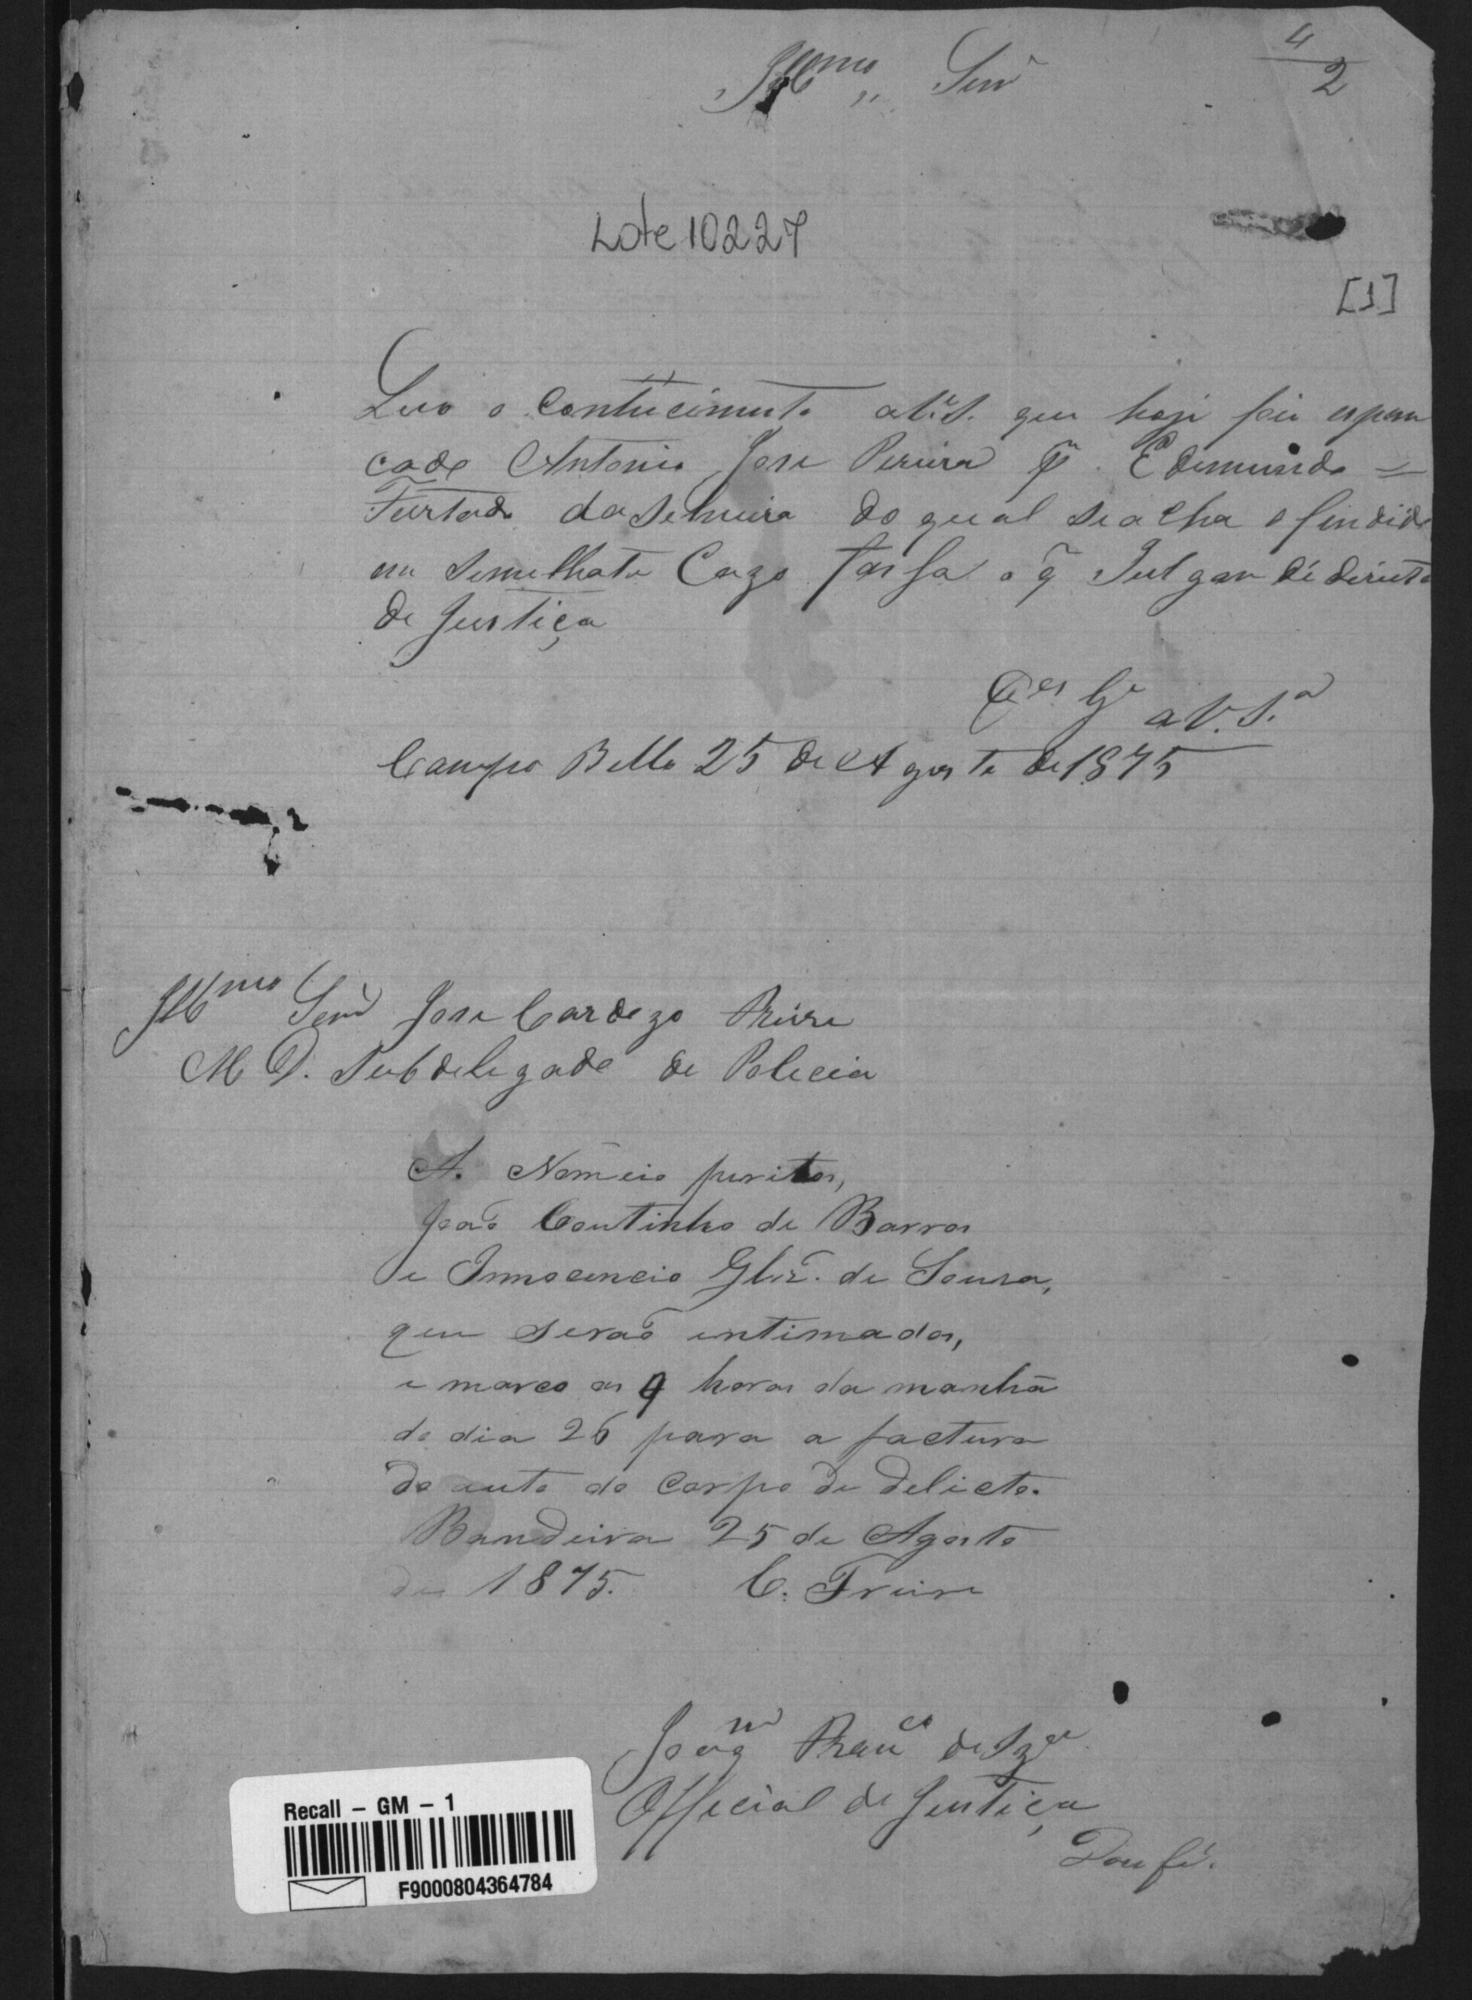 Illmo Senr
4
2
Lote 10227
[1]
Levo o Conhecimento a V.S. que hoje foi espan
cado Antonio Jose Pereira pr Edemundo =
Furtado da Selveira do qual se acha ofendido
em Semelhate Cazo fassa o q̃ Julgar dé direito
de Justiça
Ds Ge a V.S.a
Campo Bello 25 de Agosto de 1875
Illmo Senr Jose Cardozo Freire
M D. Subdelegado de Policia
A. Nomeio peritos,
João Coutinho de Barros
e Innocencio Glz. de Sousa,
que serão intimados,
e marco as 9 horas da manhã
do dia 26 para a factura
do auto do corpo de delicto.
Bandeira 25 de Agosto
de 1875. C. Freire
Joaqm Franco de Sza
Official de Justiça
Dou fé.
Recall - GM - 1
F9000804364784